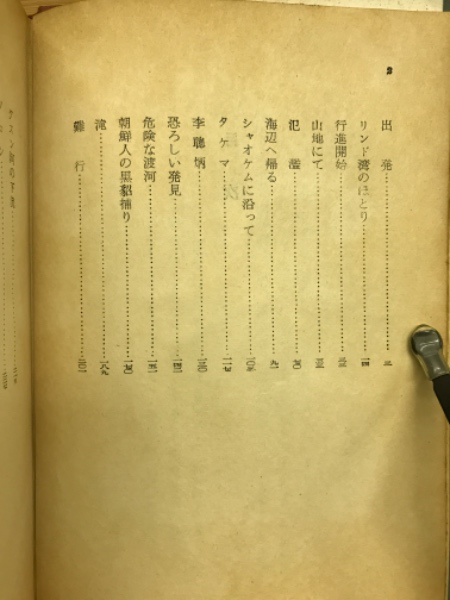 2
出発……三
リンド湾のほとり……一四
行進開始……三三
山地にて……五三
氾濫……七〇
海辺へ帰る……九一
シャオケムに沿って……一〇五
タケマ……一一七
李聰炳……一三〇
恐ろしい発見……一四一
危険な渡河……一五一
朝鮮人の黒貂捕り……一七〇
滝……一八九
難行……二〇一